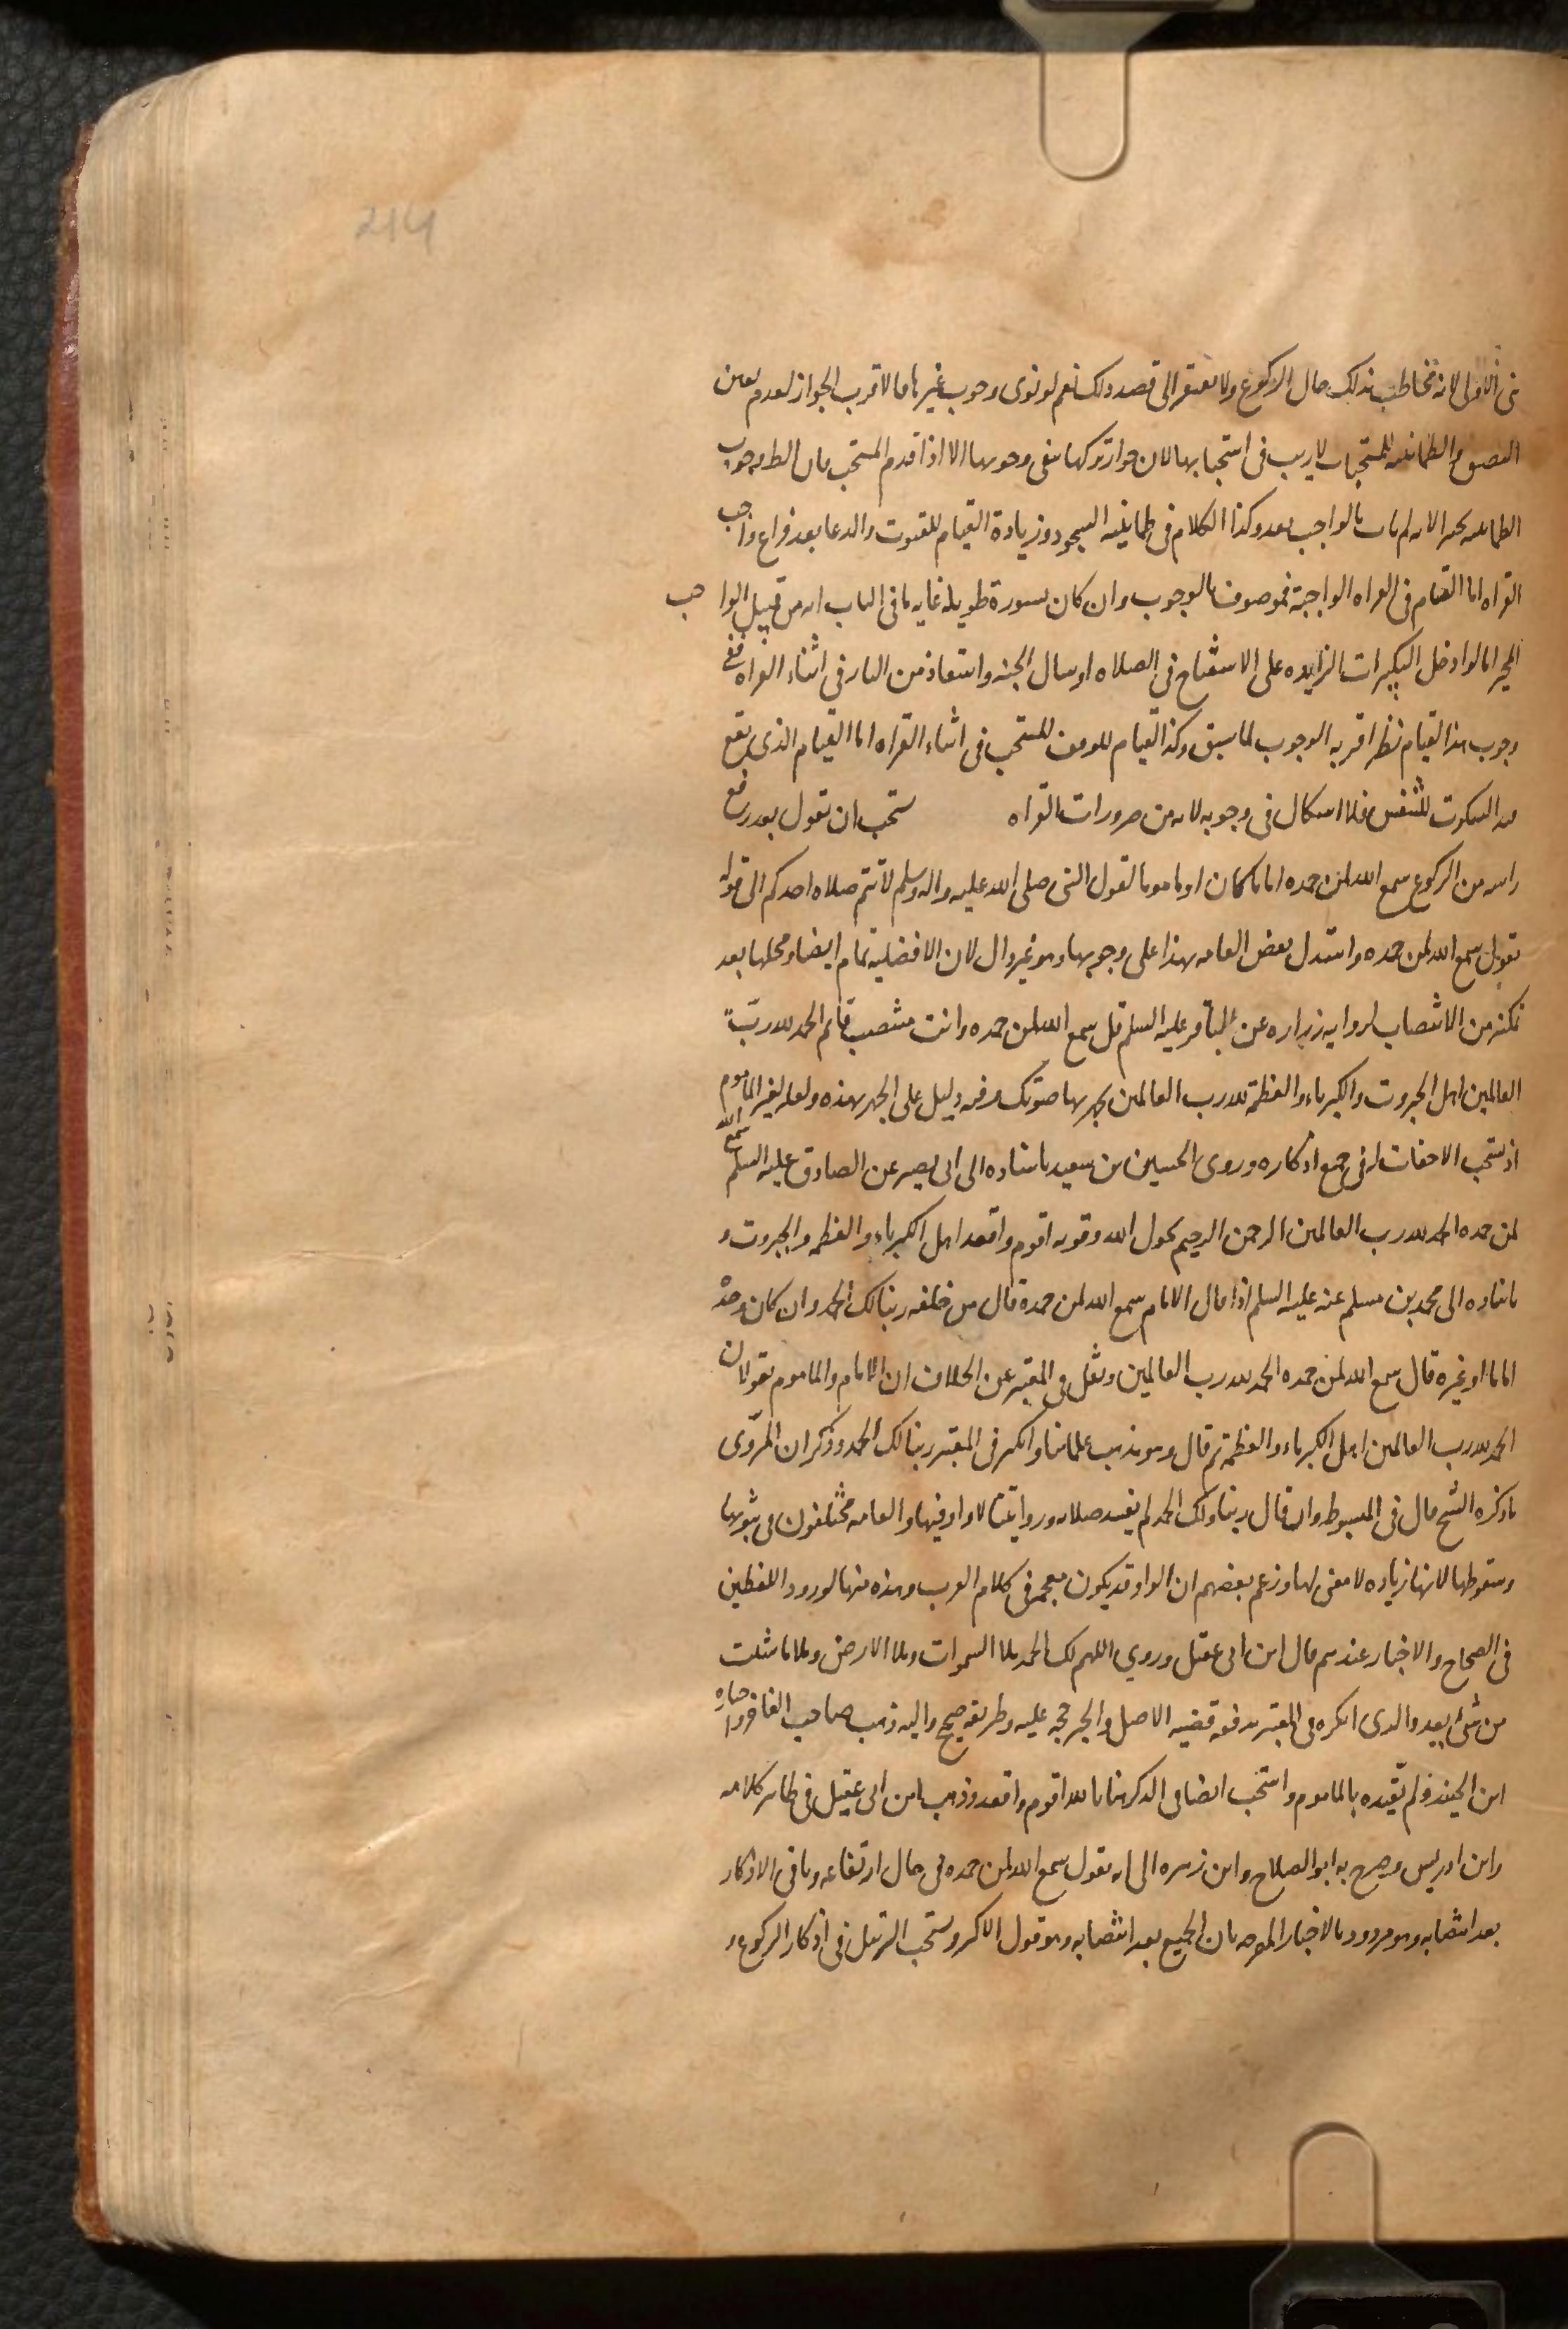 214
في الاولى لانه مخاطب بذلك حال الركوع ولا يفتقر الى قصد ذلك نعم لو نوى وجوب غيرها فالاقرب الجواز لعدم تعين
المستحبات لا ريب في استحبابها لان جواز تركها ينفي وجوبها الا اذا قدم المستحب فان الظ وجوب
الطمانينه لانه لم يات بالواجب بعد وكذا الكلام في طمانينه السجود وزيادة القيام للقنوت والدعا بعد فراغ واجب
القراه اما القيام في القراه الواجبة فموصوف بالوجوب وان كان بسورة طويله غايه ما في الباب انه من قبيل الواجب
المخير اما لو ادخل التكبيرات الزايده على الاستفتاح في الصلاه او سال الجنه واستعاذ من النار في اثناء القراه ففي
وجوب هذا القيام نظر اقربه الوجوب لما سبق وكذا القيام للوقف المستحب في اثناء القراه اما القيام الذي يقع
فيه السكوت للتنفس فلا اشكال في وجوبه لانه من ضرورات القراه يستحب ان يقول بعد رفع
راسه من الركوع سمع الله لمن حمده اماما كان او ماموما لقول النبي صلى الله عليه واله وسلم لا تتم صلاه احدكم الى قوله
يقول سمع الله لمن حمده واستدل بعض العامه بهذا على وجوبها وهو غير دال لان الافضليه تمام ايضا ومحلها بعد
تمكنه من الانتصاب لروايه زراره عن الباقر عليه السلم قل سمع الله لمن حمده وانت منتصب قائم الحمد لله رب
العالمين اهل الجبروت والكبرياء والعظمة لله رب العالمين يجهر بها صوتك وفيه دليل على الجهر بهذه ولعله لغير الماموم
اذ يستحب الاخفات له في جميع اذكاره وروى الحسين بن سعيد باسناده الى ابي بصير عن الصادق عليه السلم سمع الله
لمن حمده الحمد لله رب العالمين الرحمن الرحيم بحول الله وقوته اقوم واقعد اهل الكبرياء والعظمه والجبروت و
باسناده الى محمد بن مسلم عنه عليه السلم اذا قال الامام سمع الله لمن حمدة قال من خلفه ربنا لك الحمد وان كان وحده
اماما او غيره قال سمع الله لمن حمده الحمد لله رب العالمين ونقل في المعتبر عن الخلاف ان الامام والماموم يقولان
الحمد لله رب العالمين اهل الكبرياء والعظمة ثم قال وهو مذهب علمائنا وانكر في المعتبر ربنا لك الحمد وذكر ان المروى
ما ذكره الشيخ قال في المبسوط وان قال ربنا ولك الحمد لم يفسد صلاته وروايتنا لا واو فيها والعامه مختلفون في ثبوتها
وسقوطها لانها زياده لا معنى لها وزعم بعضهم ان الواو قد يكون مقحمه في كلام العرب وهذه منها لورود اللفظين
في الصحاح والاخبار عندهم قال ابن ابي عقيل وروي اللهم لك الحمد ملا السموات وملا الارض وملا ما شئت
من شئ بعد والذى انكره في المعتبر يدفعه قضيه الاصل والخبر حجه عليه وطريقه صحيح واليه ذهب صاحب الفاخر واختاره
ابن الجنيد ولم يقيده بالماموم واستحب ايضا في الذكر هنا بالله اقوم واقعد وذهب ابن ابي عقيل في ظاهر كلامه
وابن ادريس وصرح به ابو الصلاح وابن زهره الى انه يقول سمع الله لمن حمده في حال ارتفاعه وباقي الاذكار
بعد انتصابه وهو مردود بالاخبار المصرحه بان الجميع بعد انتصابه وهو قول الاكثر ويستحب الترتيل في اذكار الركوع و